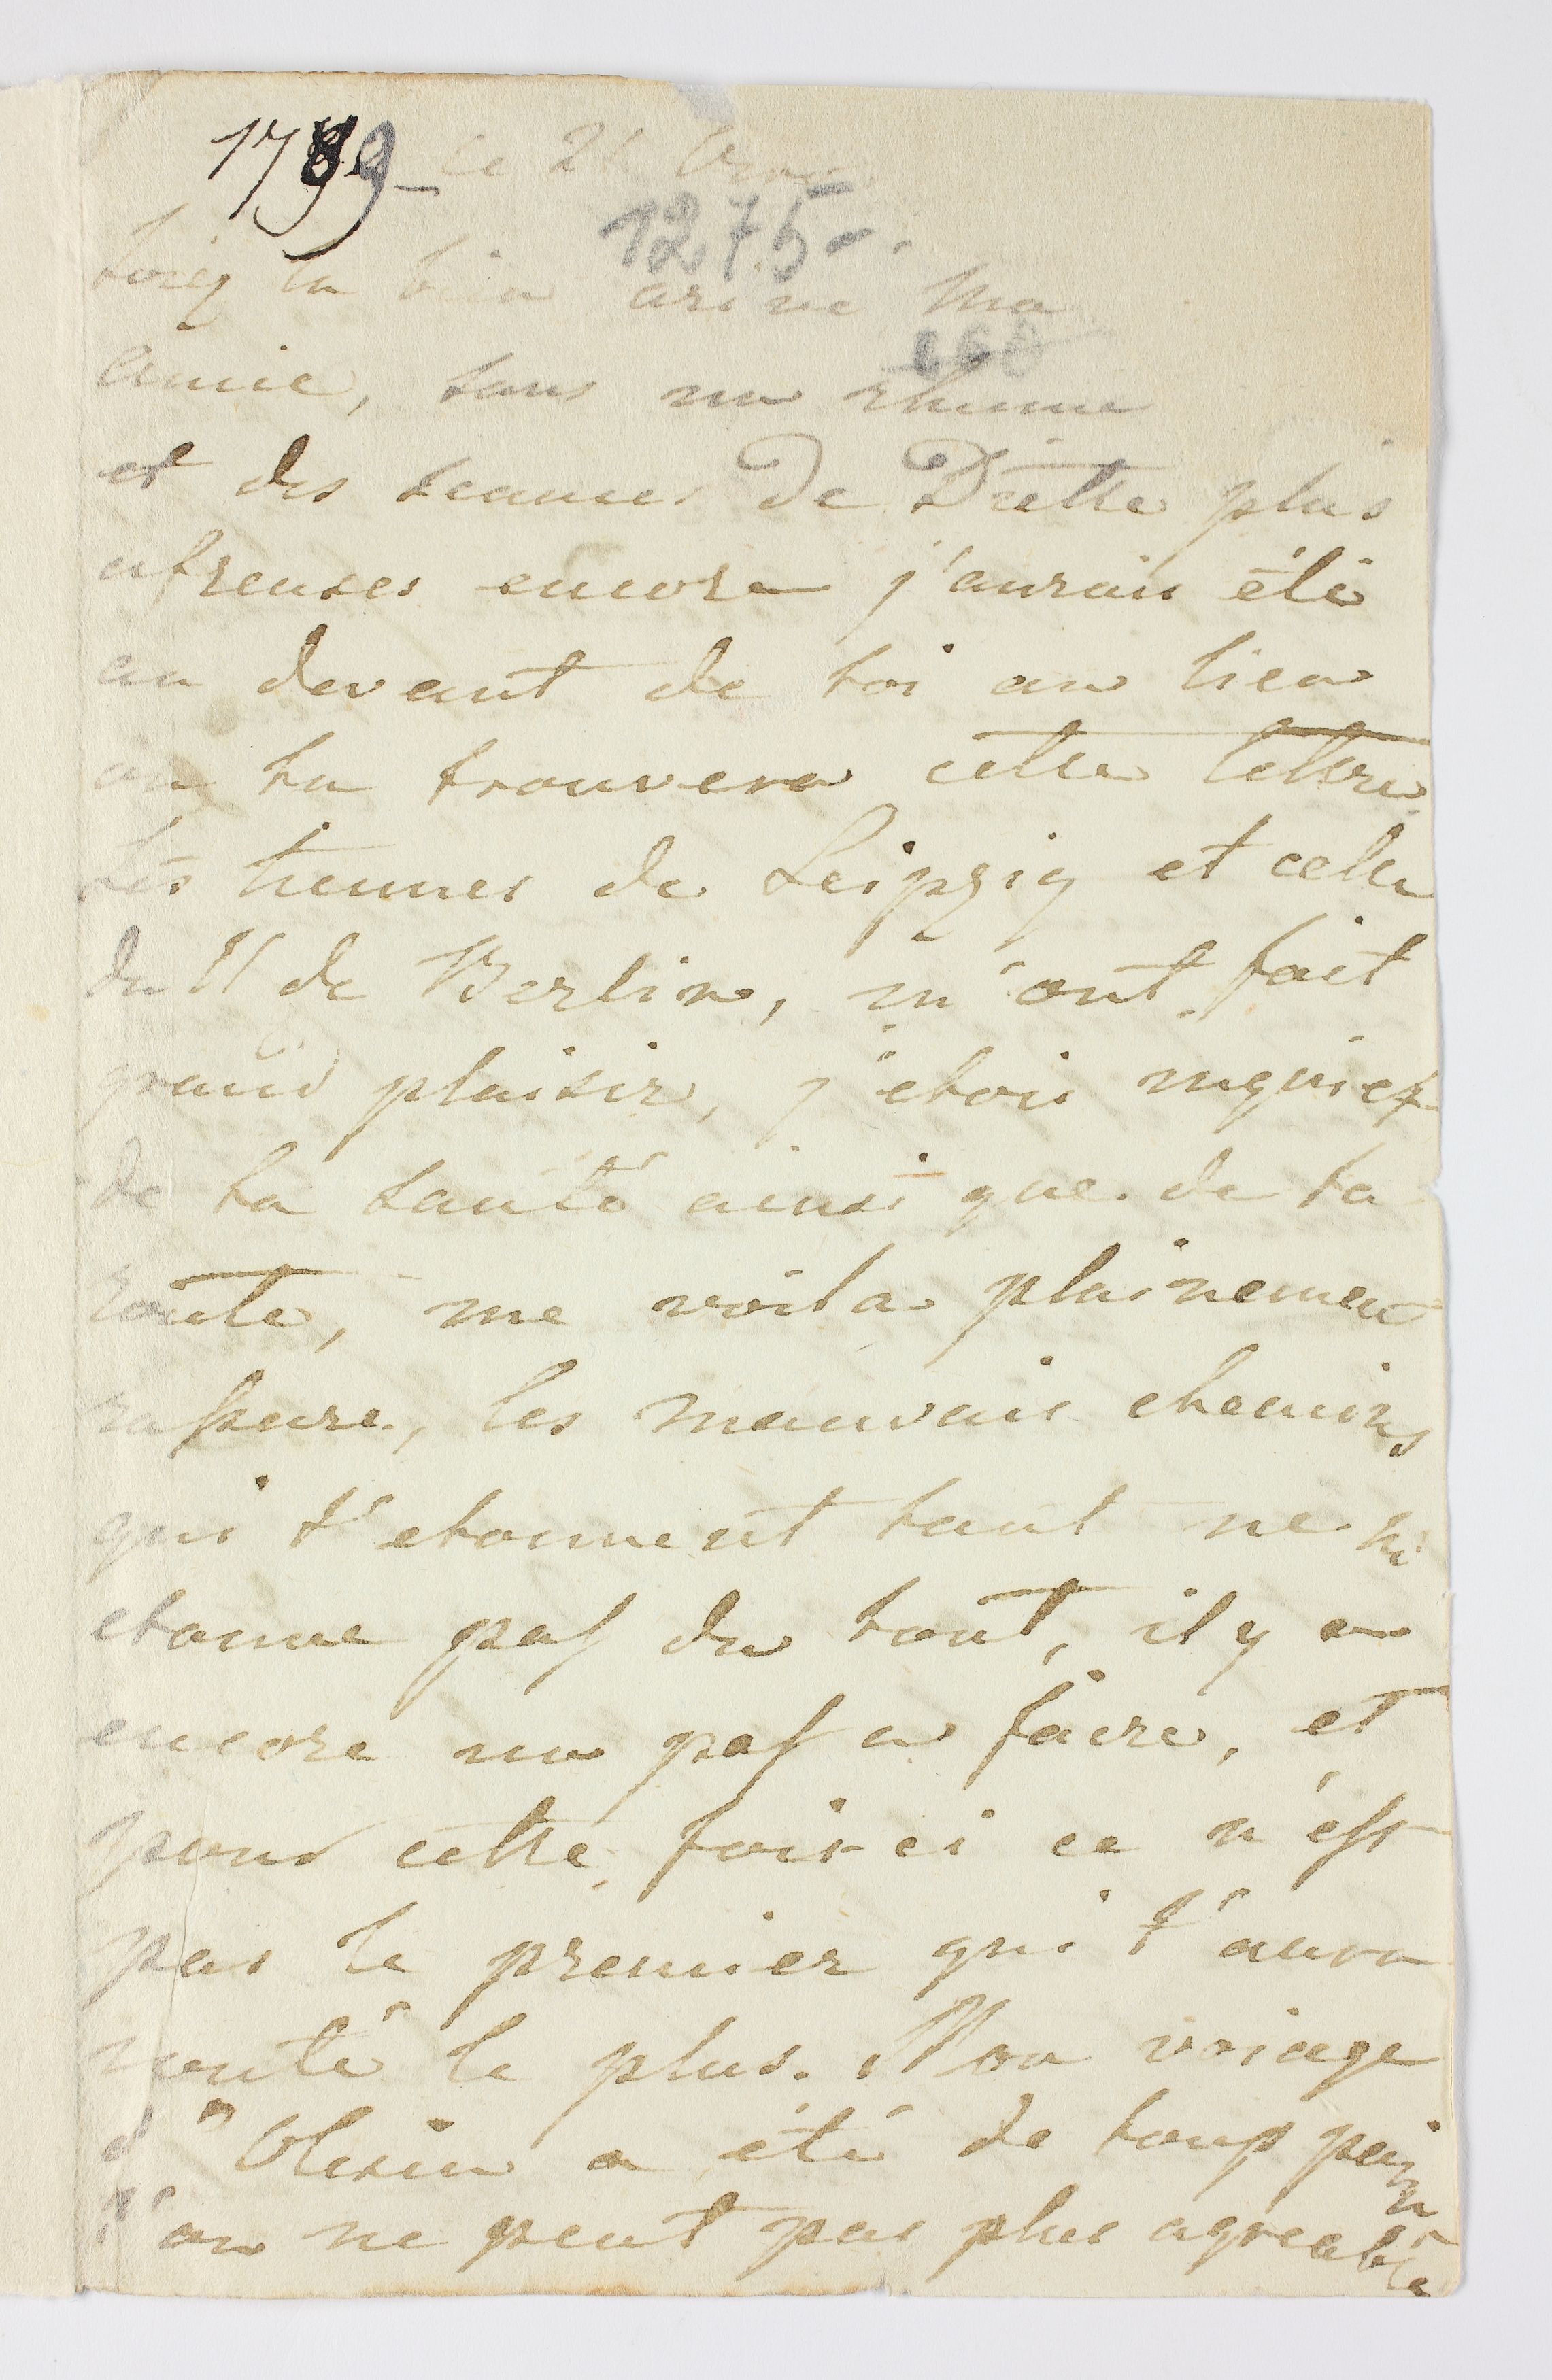 1789 ce 21
1275-.
soiez la bien arive ma
amie, sans un rhume
et des seances de Diette plus
afreuses encore j'aurais été
au devant de toi au lieu
ou tu trouvera cette lettre
Les tiennes de Leipzig et celle
du 11 de Berlin, m'ont fait
grand plaisir, j'etois inquiet
de ta santé ainsi que de ta
route, me voila plainement
rassure, les mauvais chemins
qui t'etonnent tant ne m'
etonne pas du tout, il y a
encore un pas a faire, et
pour cette fois-ci ce n'est
pas le premier qui t'aura
couté le plus. Mon voiage
d'Olesin a été de tout point
l'on ne peut pas plus agreable